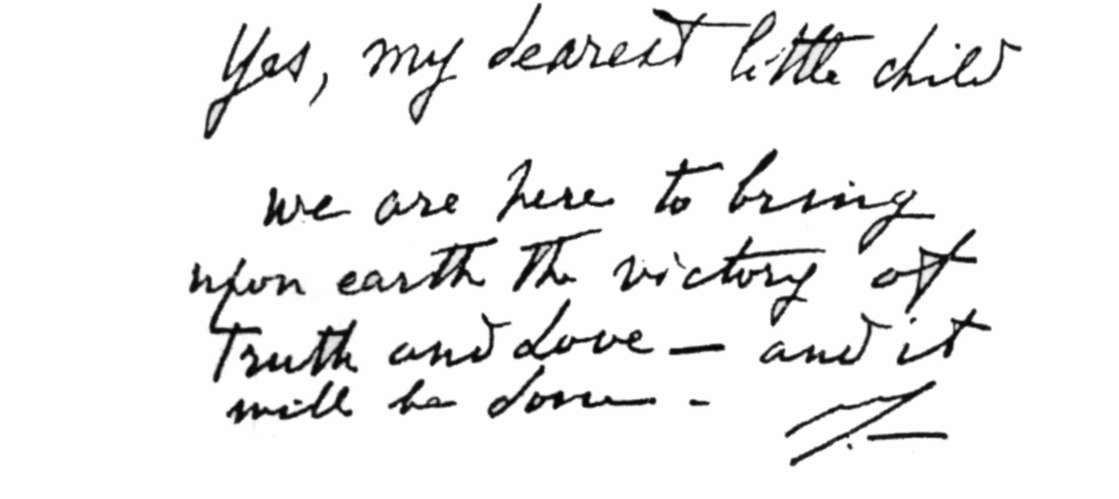 Yes, my dearest little child
we are here to bring
upon earth the victory of
Truth and Love — and it
will be done -